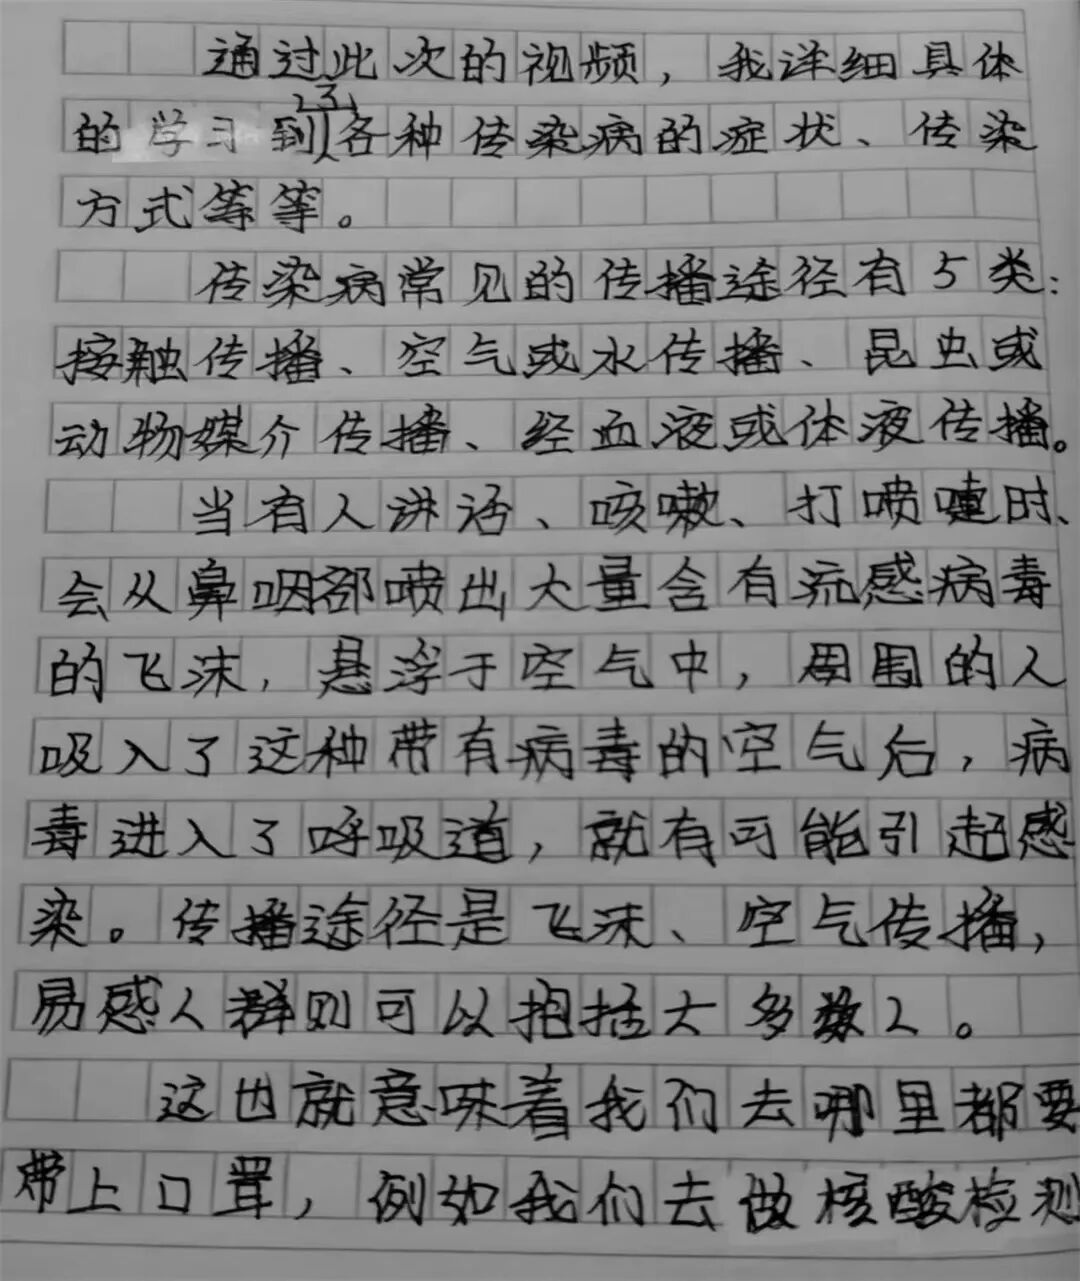 通过此次的视频，我详细具体
的学习到了各种传染病的症状、传染
方式等等。
传染病常见的传播途径有5类：
接触传播、空气或水传播、昆虫或
动物媒介传播、经血液或体液传播。
当有人讲话、咳嗽、打喷嚏时、
会从鼻咽部喷出大量含有流感病毒
的飞沫，悬浮于空气中，周围的人
吸入了这种带有病毒的空气后，病
毒进入了呼吸道，就有可能引起感
染。传播途径是飞沫、空气传播，
易感人群则可以抱括大多数人。
这也就意味着我们去哪里都要
带上口罩，例如我们去做核酸检测